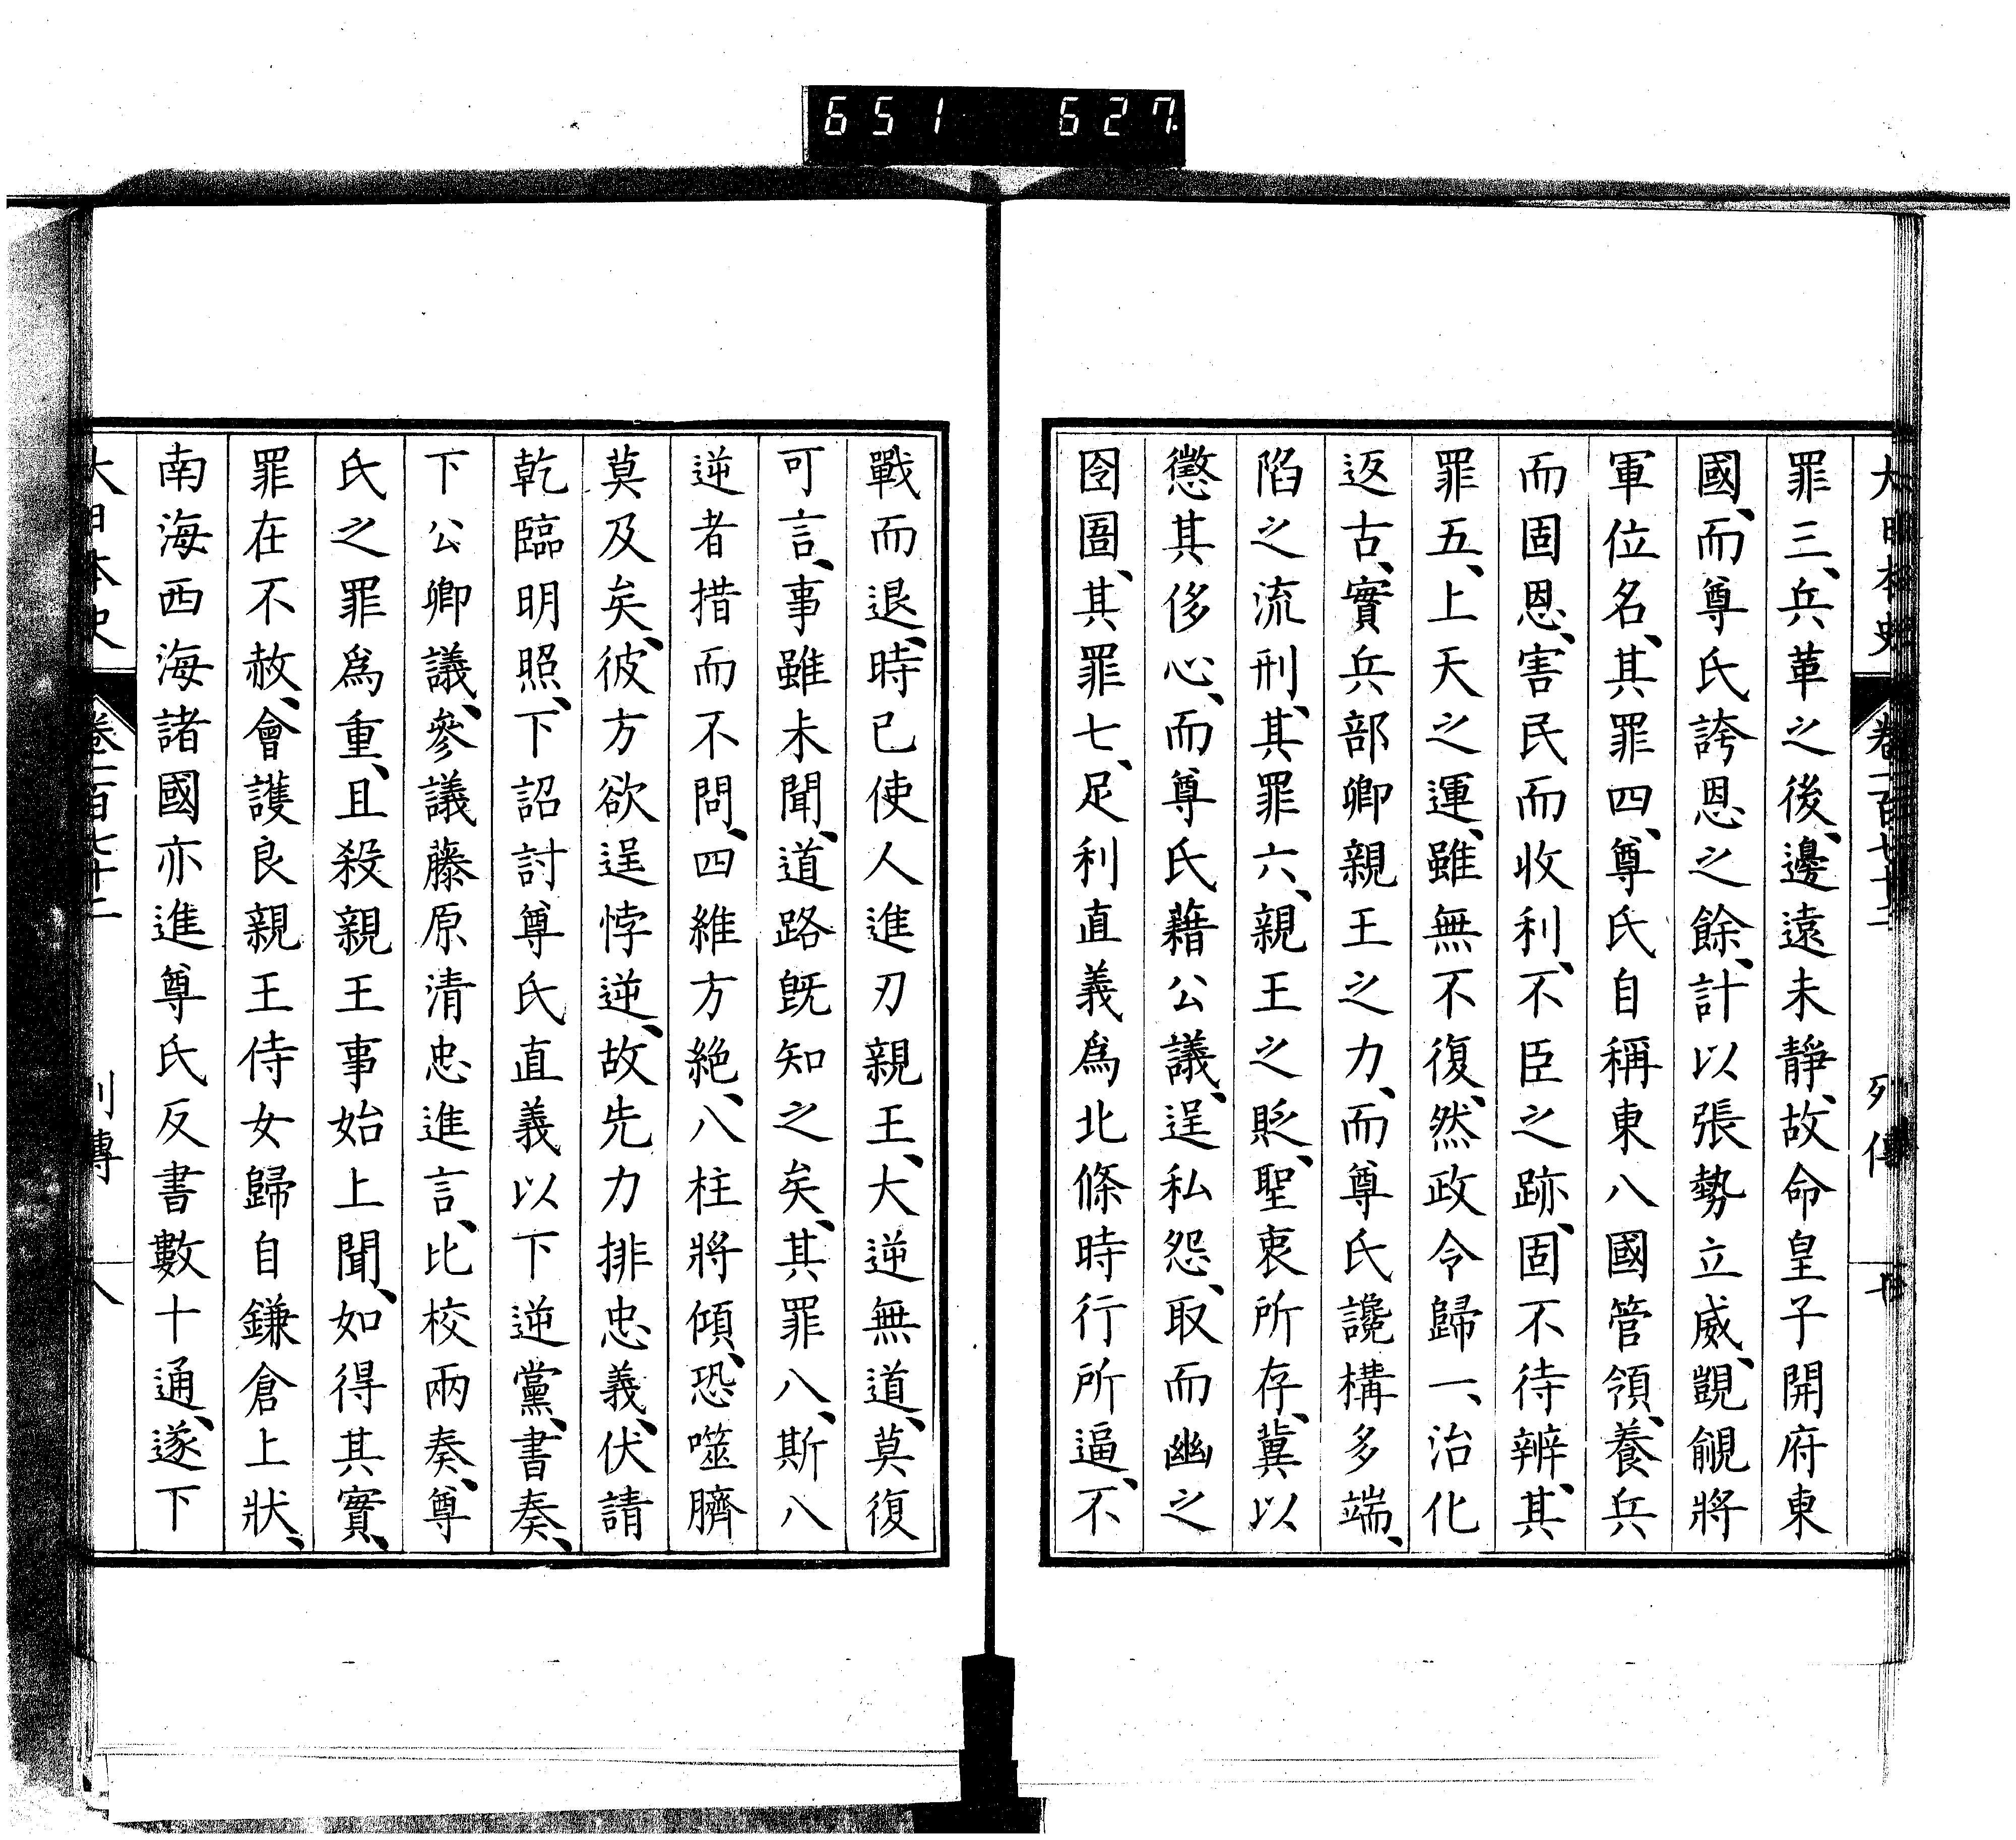 651 627
大日本史 卷一百七十二 列傳 七
罪三、兵革之後、邊遠未靜、故命皇子開府東
國、而尊氏誇恩之餘、計以張勢立威、覬覦將
軍位名、其罪四、尊氏自稱東八國管領、養兵
而固恩、害民而收利、不臣之跡、固不待辨、其
罪五、上天之運、雖無不復、然政令歸一、治化
返古、實兵部卿親王之力、而尊氏讒構多端、
陷之流刑、其罪六、親王之貶、聖衷所存、冀以
懲其侈心、而尊氏藉公議、逞私怨、取而幽之
囹圄、其罪七、足利直義爲北條時行所逼、不
戰而退、時已使人進刃親王、大逆無道、莫復
可言、事雖未聞、道路既知之矣、其罪八、斯八
逆者措而不問、四維方絶、八柱將傾、恐噬臍
莫及矣、彼方欲逞悖逆、故先力排忠義、伏請
乾臨明照、下詔討尊氏直義以下逆黨、書奏、
下公卿議、參議藤原清忠進言、比校兩奏、尊
氏之罪爲重、且殺親王事始上聞、如得其實、
罪在不赦、會護良親王侍女歸自鎌倉上狀、
南海西海諸國亦進尊氏反書數十通、遂下
大日本史 卷一百七十二 列傳 八